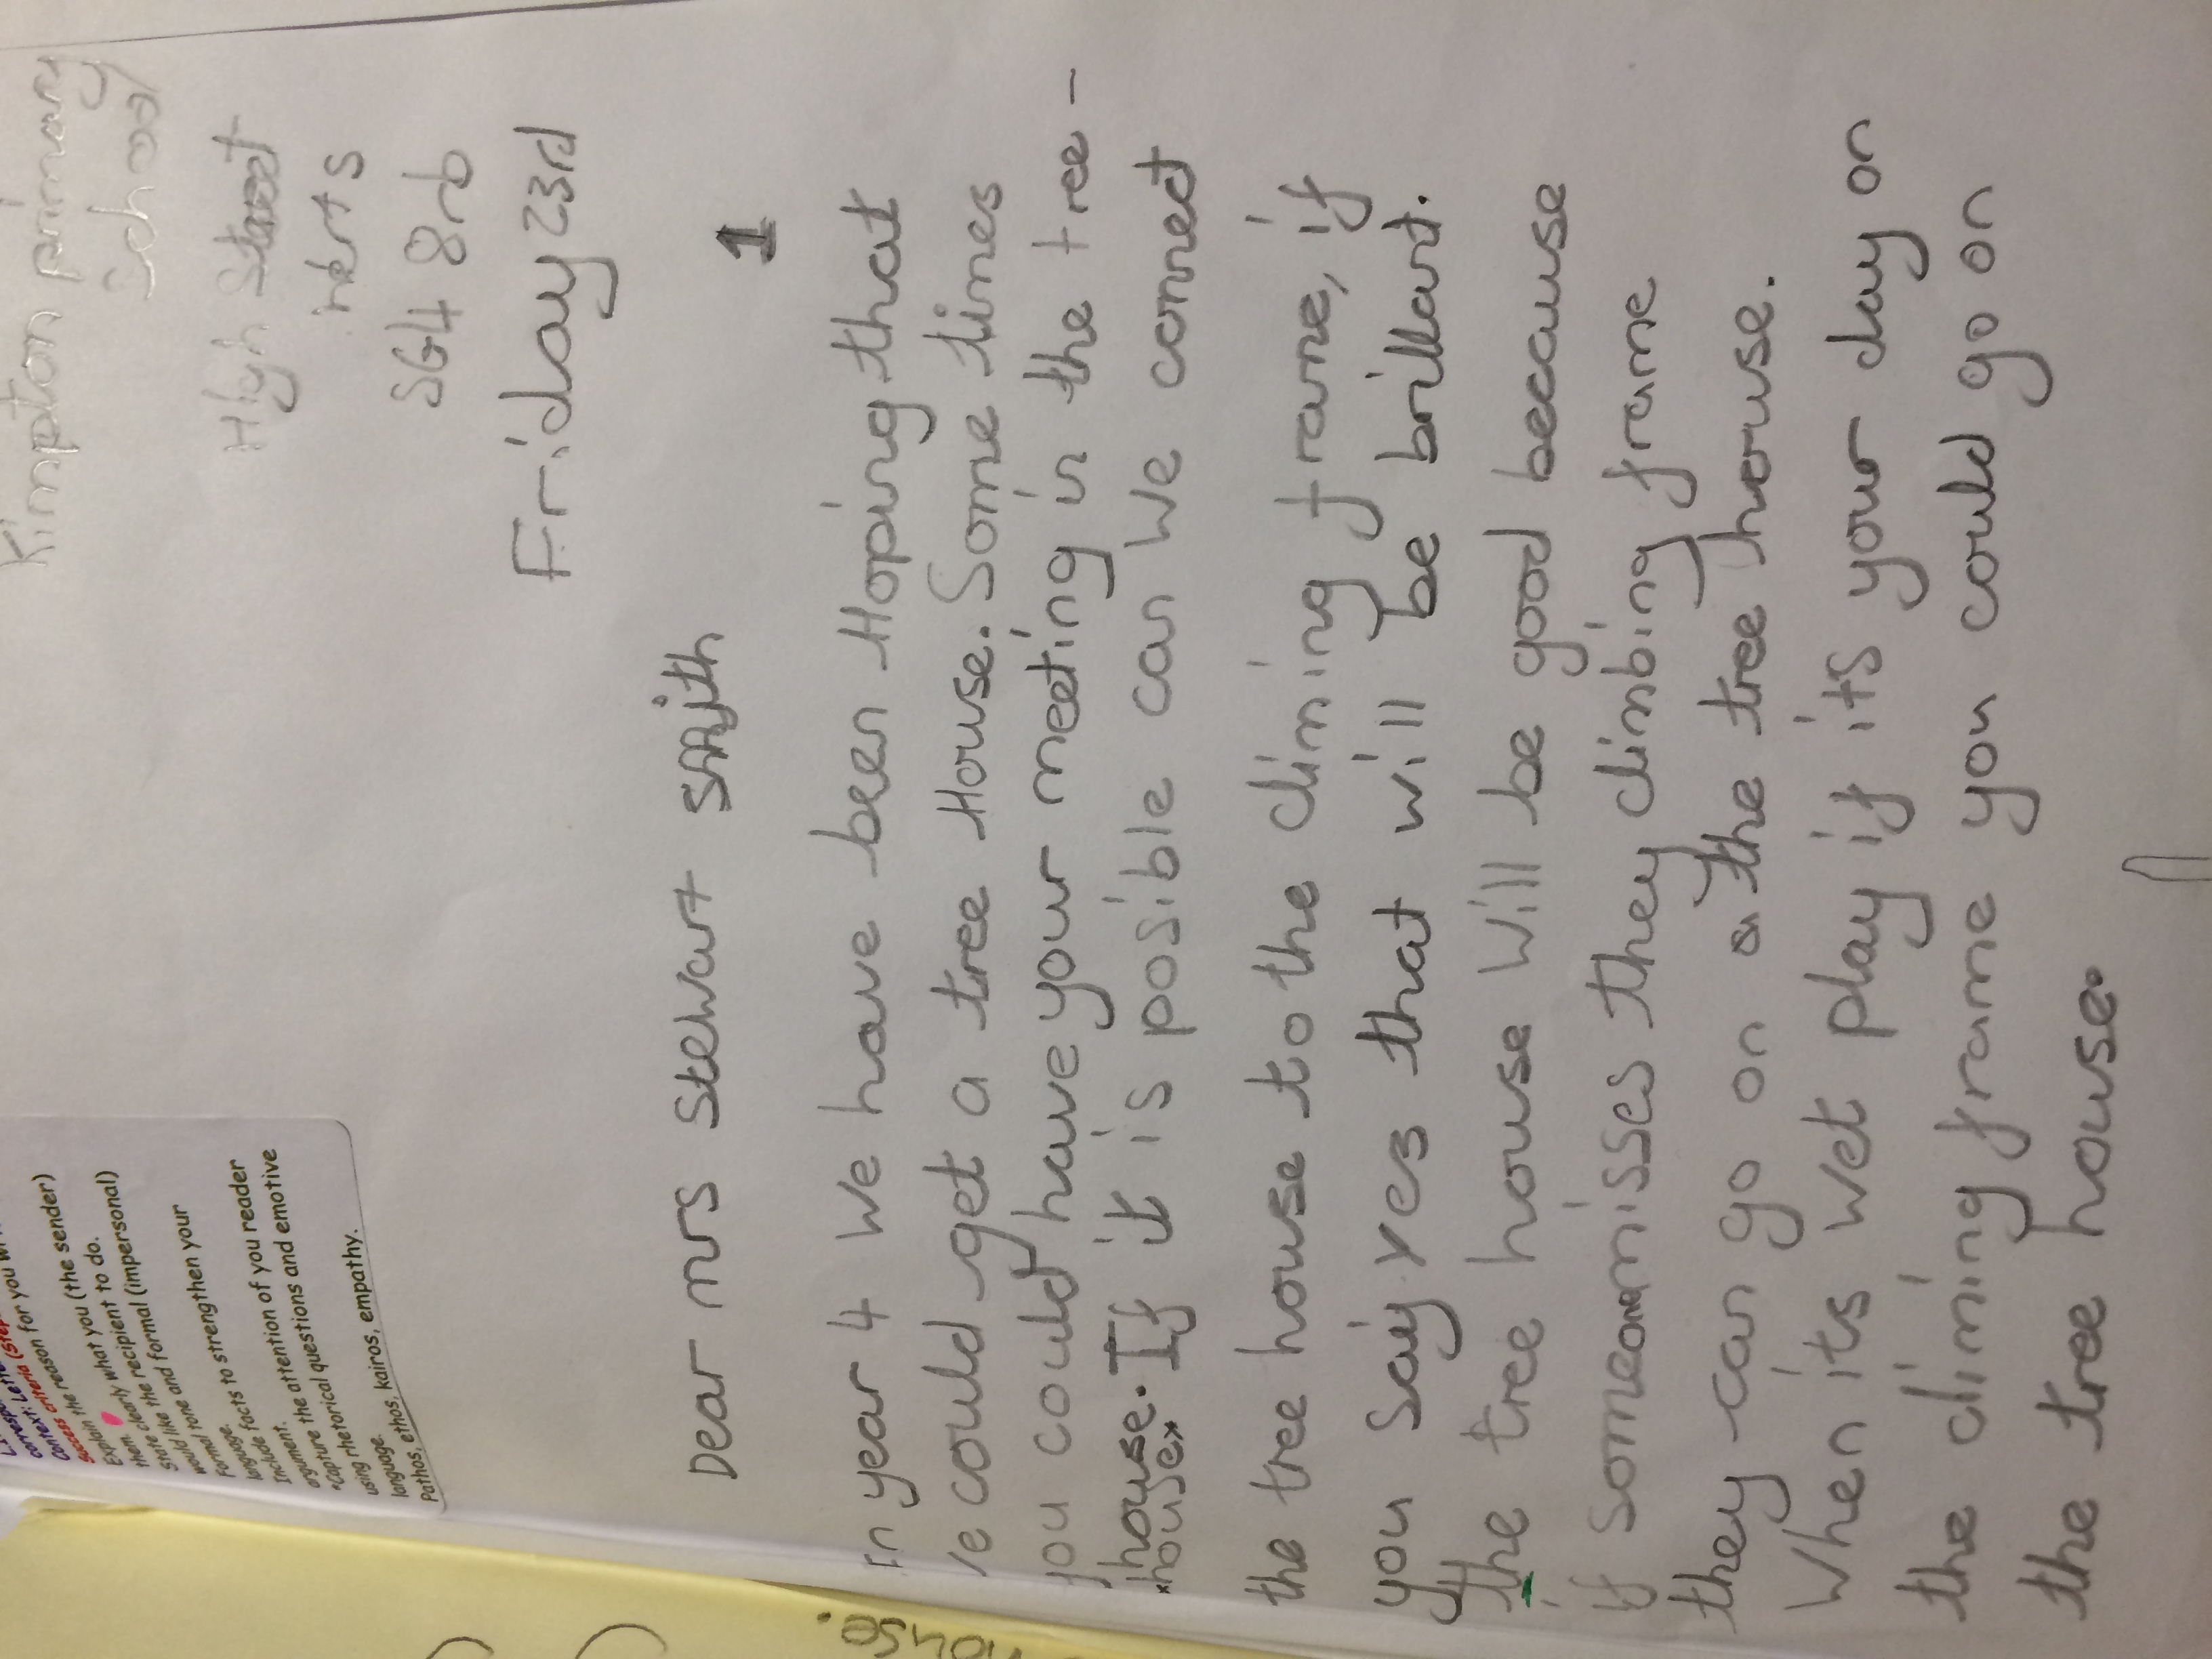 Kimpton primary
School
High Street
herts
SG4 8rb
Friday 23rd
1
Dear mrs stewart smith
In year 4 we have been Hoping that
we could get a tree House. Some times
you could have your meeting in the tree-
house. If it is posible can we connect
*house*
the tree house to the climing frame, if
you say yes that will be brillant.
the tree house will be good because
if someone misses they climbing frame
they can go on a the tree house.
When its wet play if its your day on
the climing frame you could go on
the tree house.
Context: Lette
Success criteria (Step
Explain the reason for you wr
Explain what you (the sender)
them clearly recipient to do.
State like the formal (impersonal)
would tone and formal
Formal language.
Include facts to strengthen your
argument.
*Capture the attention of you reader
using rhetorical questions and emotive
language.
Pathos, ethos, kairos, empathy.